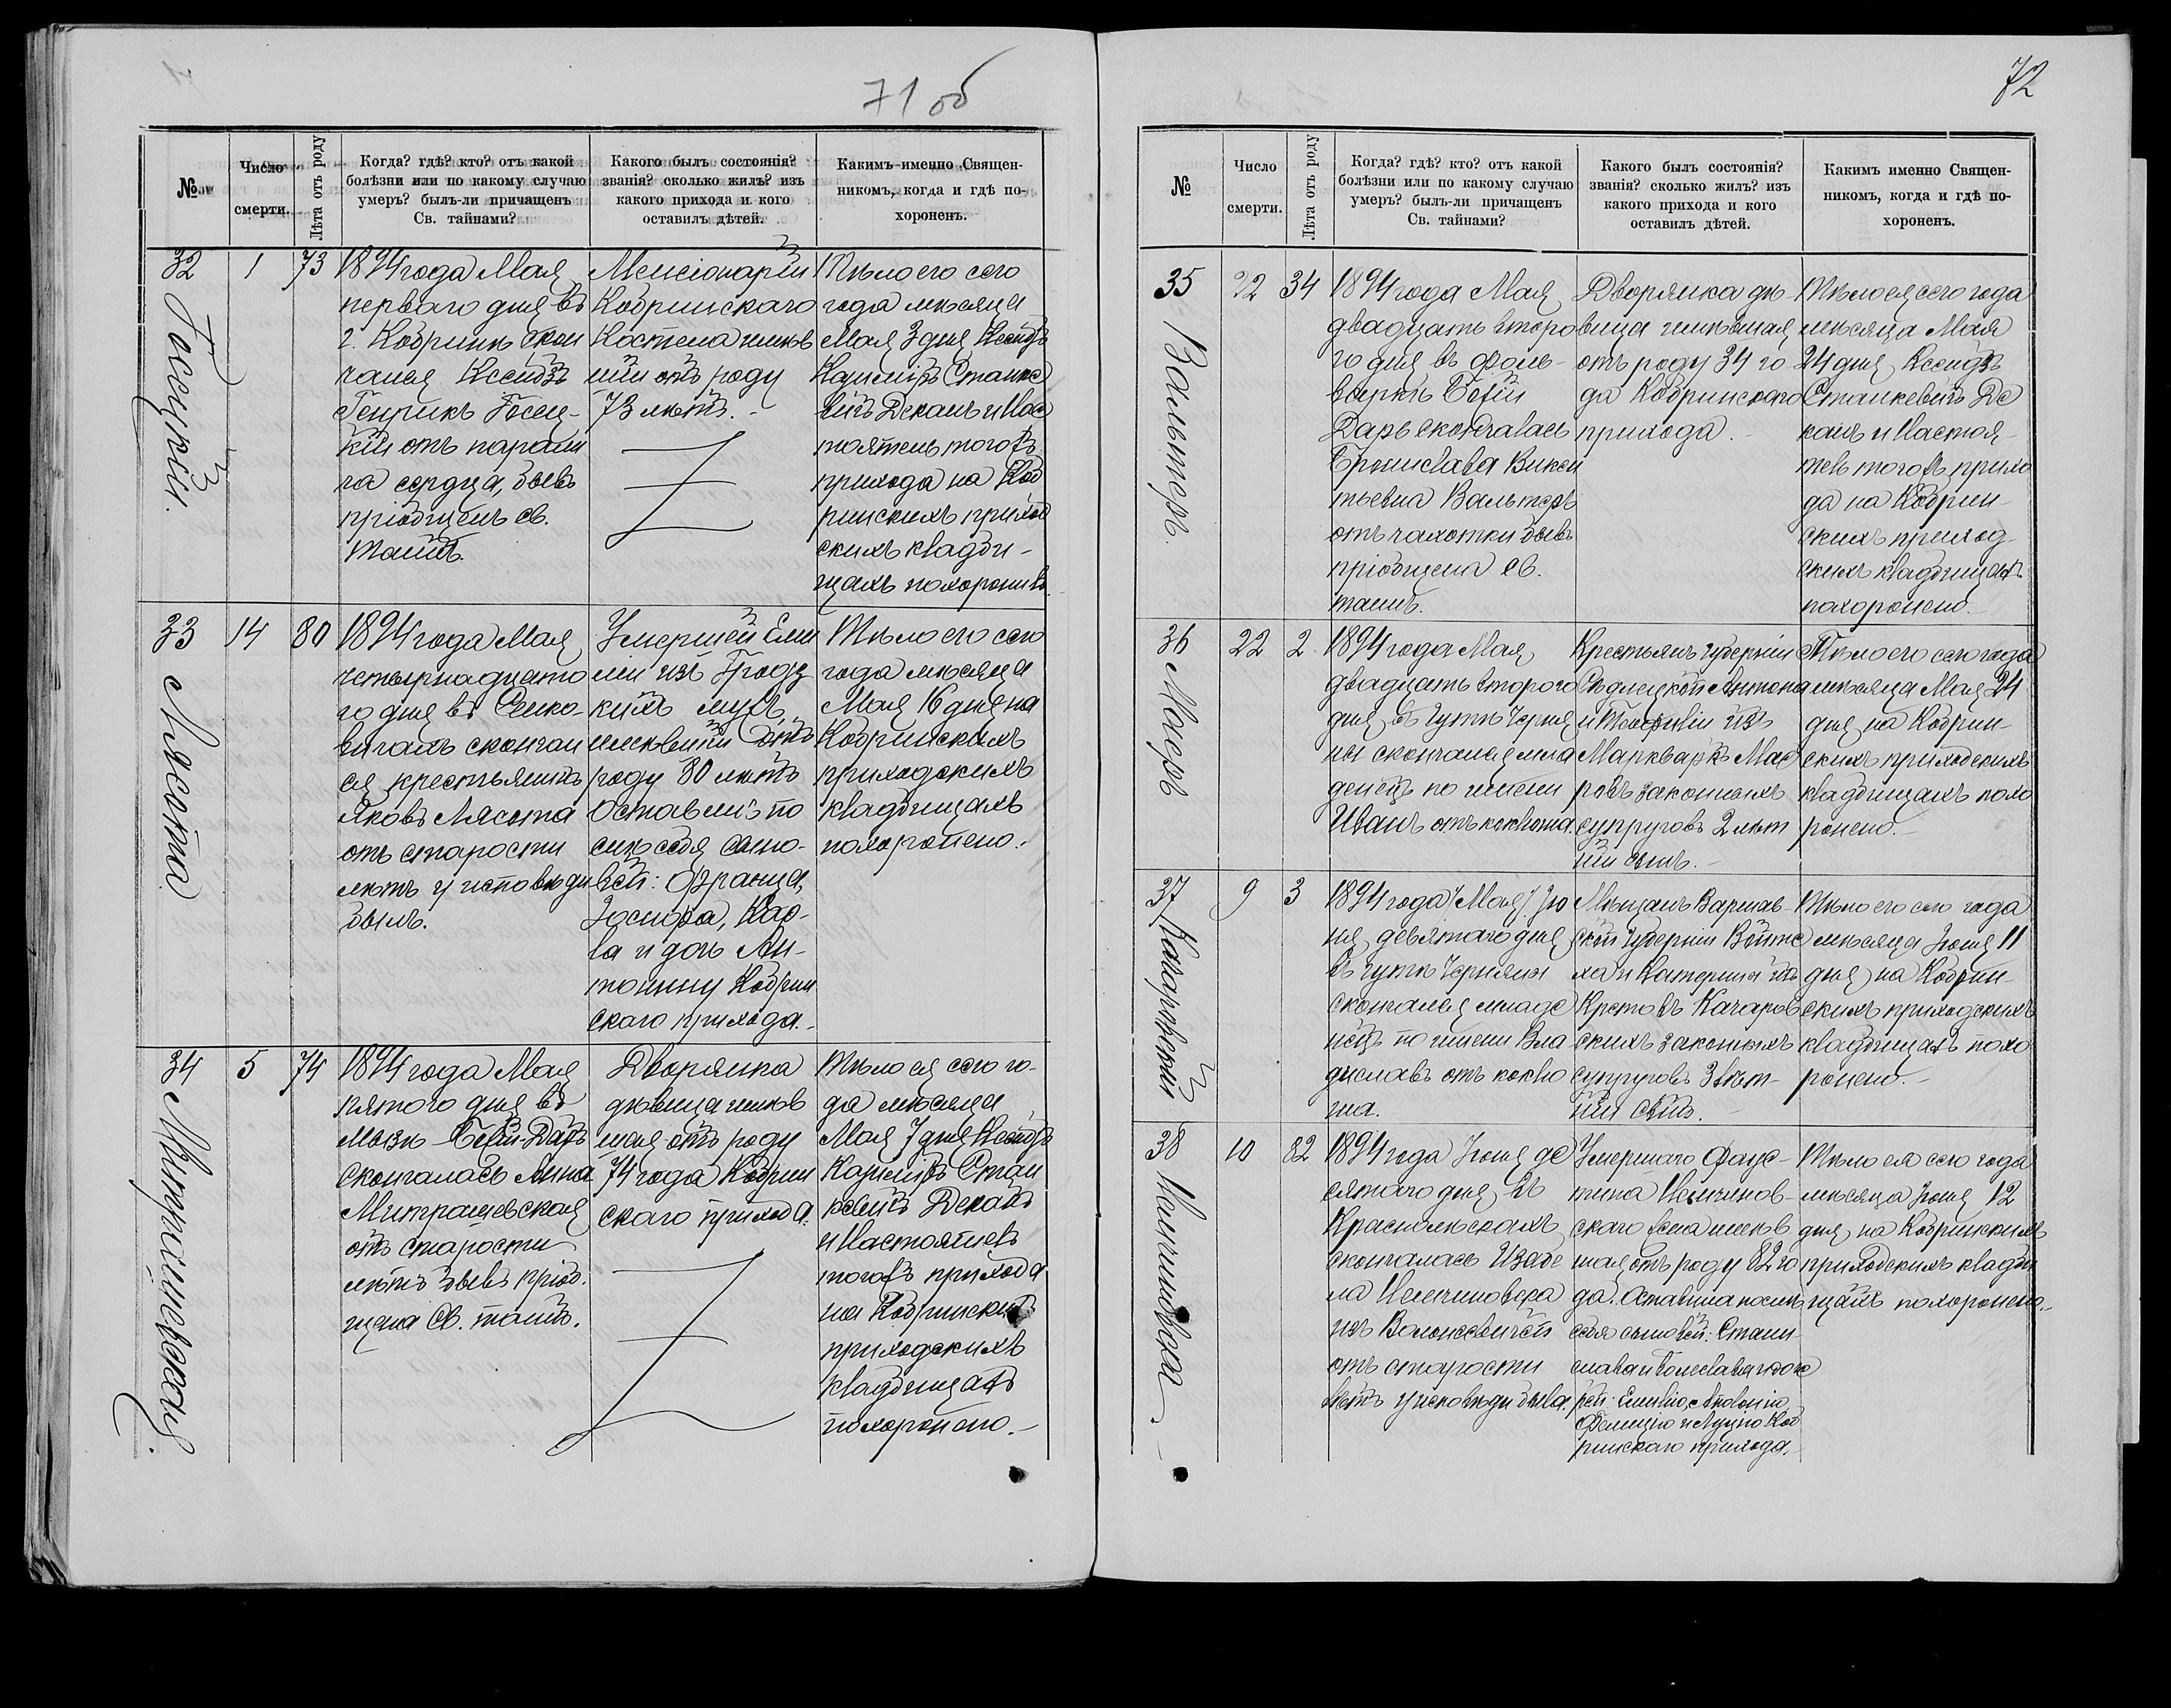 71 об
№
Число смерти.
Лѣта отъ роду
Когда? гдѣ? кто? отъ какой
болѣзни или по какому случаю
умеръ? былъ-ли причащенъ
Св. тайнами?
Какого былъ состоянія?
званія? сколько жилъ? изъ
какого прихода и кого
оставилъ дѣтей.
Какимъ-именно Священ-
никомъ, когда и гдѣ по-
хороненъ.
32
1
73
1894 года Мая
перваго дня въ
г. Кобринѣ скон
чался Ксендзъ
Генрикъ
кій отъ парали
ча сердца, бывъ
пріобщенъ св.
таинъ.
Кобринскаго
Костела имѣв
шій отъ роду
73 лѣтъ.
Тѣло его сего
года мѣсяца
Мая 3 дня Ксендзъ
Казиміръ Станке
вичъ Деканъ и Нас
тоятель тогожъ
прихода на Коб
ринскихъ приход
скихъ кладби-
щахъ похоронилъ.
33
Лясота
14
80
1894 года Мая
четырнадцата
го дня въ
вичахъ скончал
ся крестьянинъ
Яковъ Лясота
отъ старости
лѣтъ у исповѣди
былъ.
Умершей Еми
ліи изъ
кихъ мужъ,
имѣвшій отъ
роду 80 лѣтъ
Оставилъ по
слѣ себя сыно-
вей: Франца,
Іосифа, Кар-
ла и дочь Ан-
тонину Кобрин
скаго прихода.
Тѣло его сего
года мѣсяца
Мая 16 дня на
Кобринскихъ
приходскихъ
кладбищахъ
похоронено.
34
Митрашевская.
5
74
1894 года Мая
пятого дня въ
мызѣ Божій-Даръ
скончалась Анна
Митрашевская
отъ старости
лѣтъ бывъ пріоб
щена Св. таинъ.
Дворянка
дѣвица имѣв
шая отъ роду
74 года Кобрин
скаго прихода.
Тѣло ея сего го-
да мѣсяца
Мая 7 дня Ксендзъ
Казиміръ Стан
кевичъ Деканъ
и Настоятель
тогожъ прихода
на Кобринскихъ
приходскихъ
кладбищахъ
похоронено.
72
№
Число смерти.
Лѣта отъ роду
Когда? гдѣ? кто? отъ какой
болѣзни или по какому случаю
умеръ? былъ-ли причащенъ
Св. тайнами?
Какого былъ состоянія?
званія? сколько жилъ? изъ
какого прихода и кого
оставилъ дѣтей.
Какимъ именно Священ-
никомъ, когда и гдѣ по-
хороненъ.
35
Вальтеръ
22
34
1894 года Мая
двадцать второ
го дня въ фоль-
варкѣ Божій
Даръ скончалась
Бронислава Викен
тьевна Вальтеръ
отъ чахотки бывъ
пріобщена св.
таинъ.
Дворянка дѣ-
вица имѣвшая
отъ роду 34 го
да Кобринскаго
прихода.
Тѣло ея сего года
мѣсяца Мая
24 дня Ксендзъ
Станкевичъ Де
канъ и Настоя-
тель тогожъ прихо
да на Кобрин-
скихъ приход-
скихъ кладбищахъ
похоронено.
36
22
2
1894 года Мая
двадцать второго
дня въ гутѣ Черня
ны скончался мла
денецъ по имени
Иванъ отъ коклюша.
Крестьянъ губерніи
Сѣдлецкой Антона
и изъ
законныхъ
супруговъ 2 лѣт
ній сынъ.
Тѣло его сего года
мѣсяца Мая 24
дня на Кобрин-
скихъ приходскихъ
кладбищахъ похо
ронено.
37
Качаровскій
9
3
1894 года (Мая) Ію
ня девятаго дня
въ гутѣ Черняны
скончался младе
нецъ по имени Вла
диславъ отъ коклю
ша.
Мѣщанъ Варшав-
ской губерніи Войте
ха и Катерины изъ
Качаров
скихъ законныхъ
супруговъ 3 лѣт-
ній сынъ.
Тѣло его сего года
мѣсяца Іюня 11
дня на Кобрин-
скихъ приходскихъ
кладбищахъ похо
ронено.
38
10
82
1894 года Іюня де
сятаго дня въ
скончалась Изабе
ла
изъ
отъ старости
лѣтъ у исповѣди была.
Умершаго Фаус-
тина
скаго жена имѣв
шая отъ роду 82 го
да. Оставила послѣ
себя сыновей: Стани
слава и Болеслава и доче
рей: Емилію, Аполонію
Фелицію и Луцію Коб
ринскаго прихода.
Тѣло ея сего года
мѣсяца Іюня 12
дня на Кобринскихъ
приходскихъ кладби
щахъ похоронено.